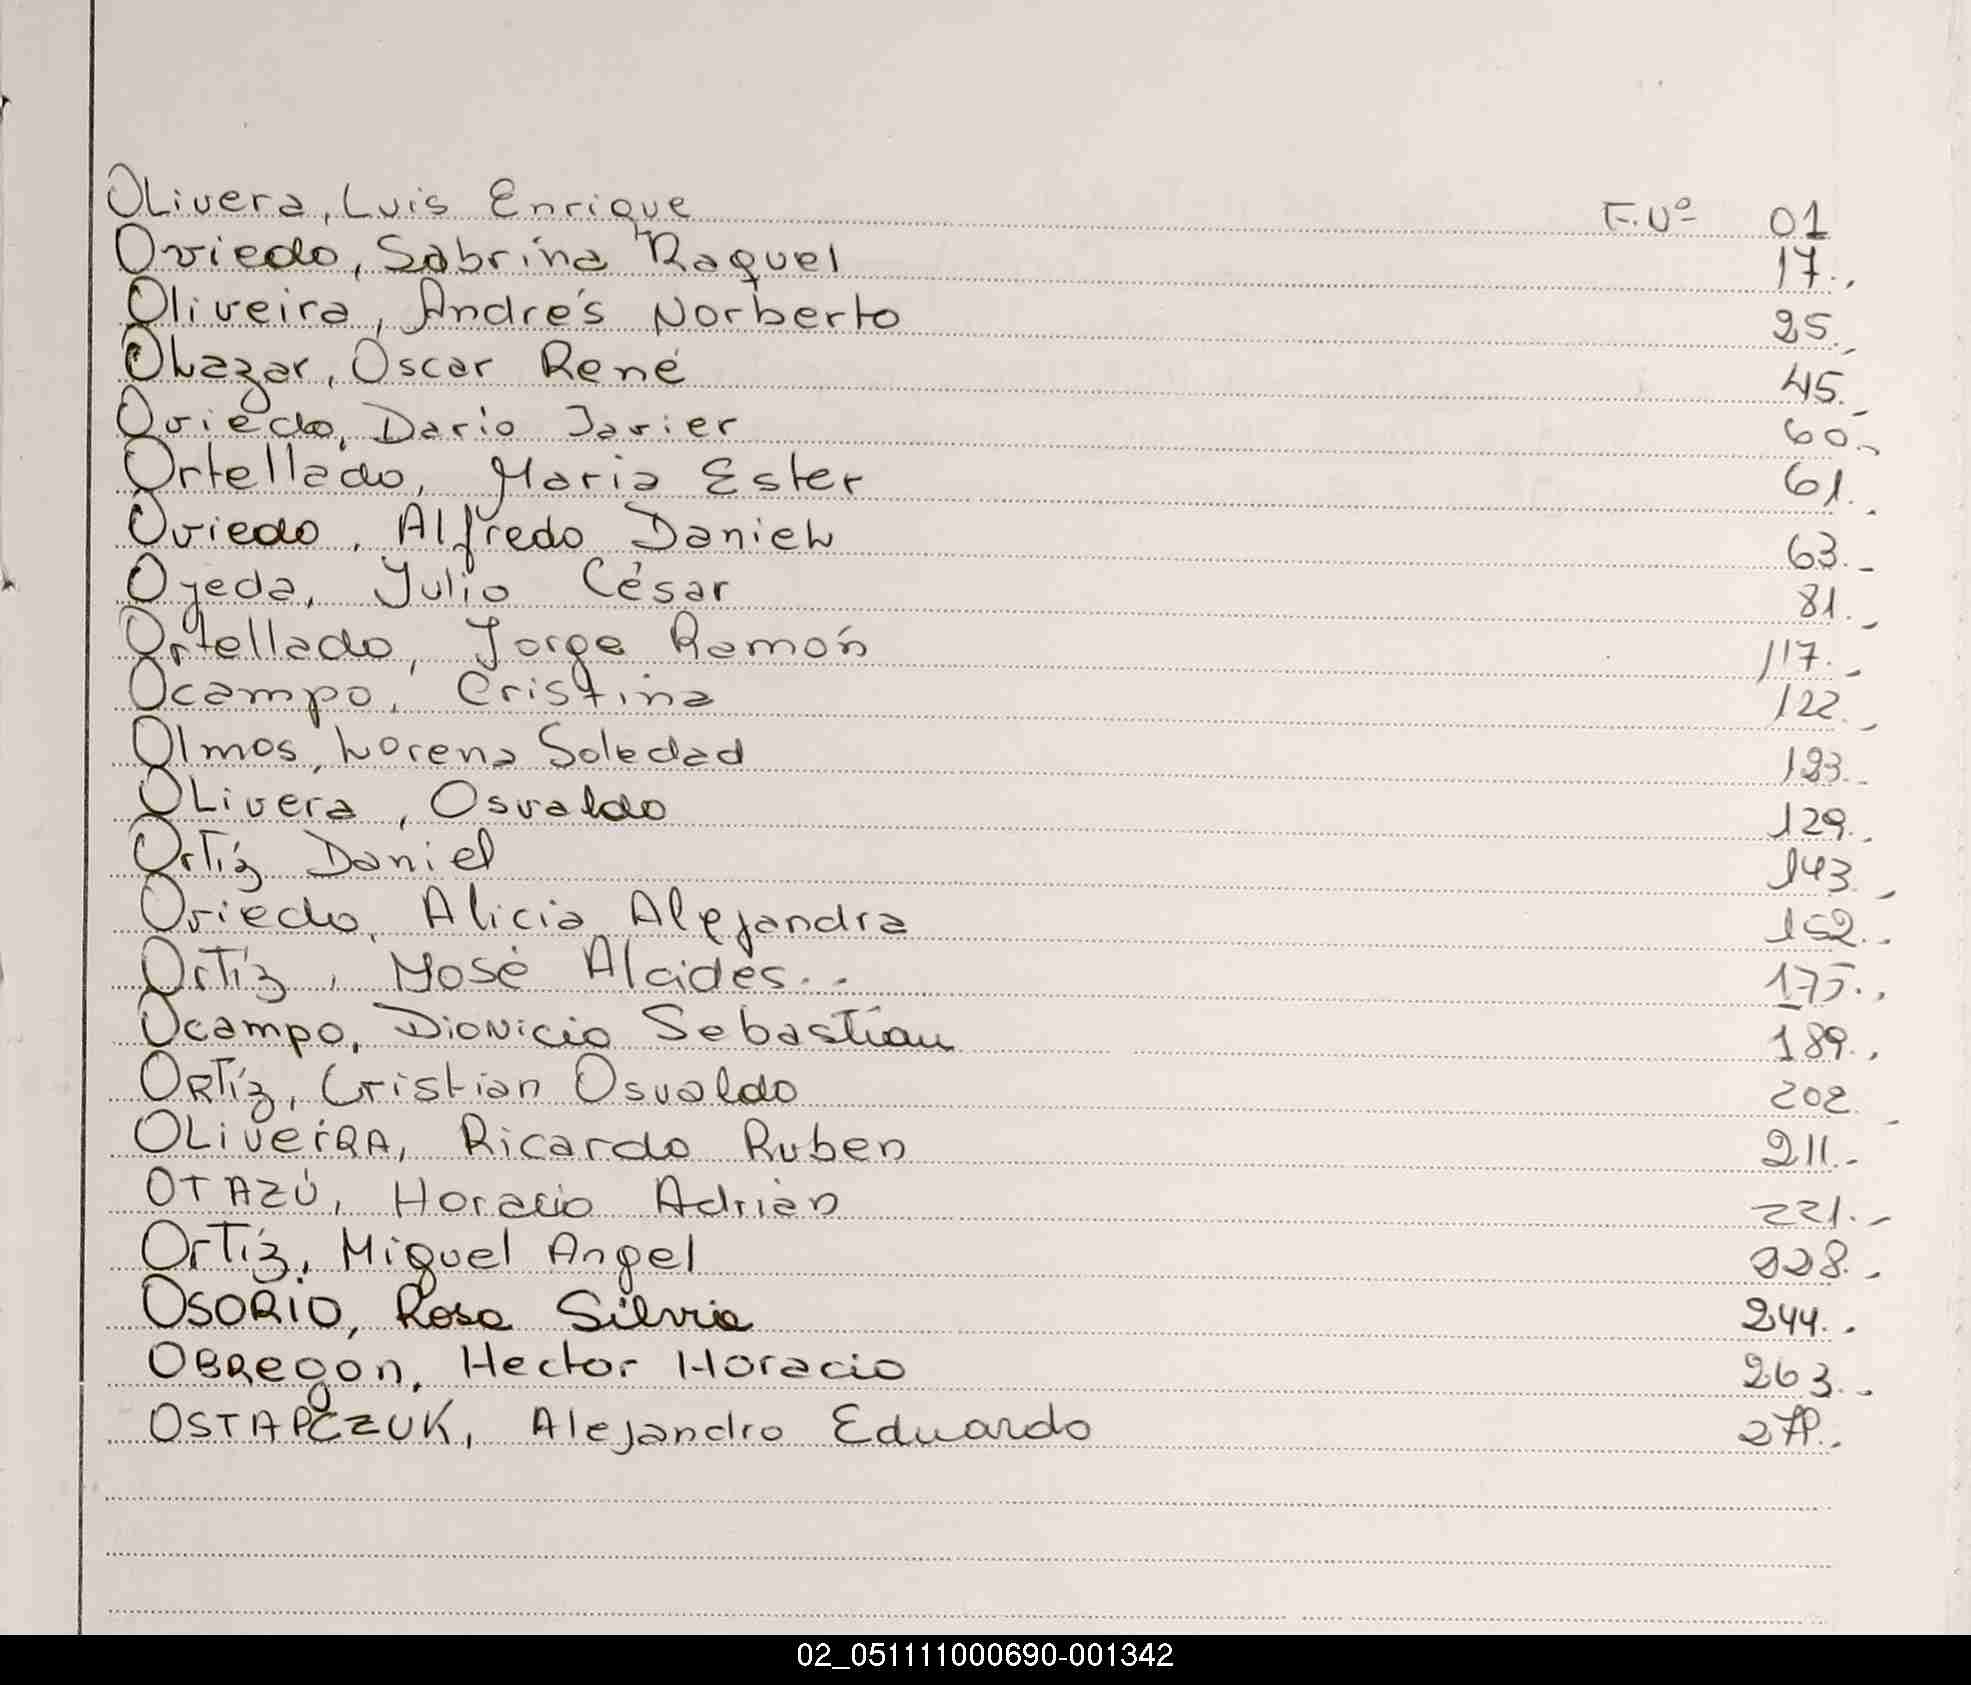 OLivera, Luis Enrique F.Nº 01
Oviedo, Sabrina Raquel 17.,
Oliveira, Andrés Norberto 25.,
OLazar, Oscar René 45._
Oviedo, Dario Javier 60.-
Ortellado, Maria Ester 61..
Oviedo, Alfredo DanieL 63._
Ojeda, Julio César 81._
Ortellado, Jorge Ramón 117._
Ocampo, Cristina 122._
Olmos, Lorena Soledad 123..
OLivera, Osvaldo 129.,
Ortíz Daniel 143._
Oviedo, Alicia Alejandra 152..
Ortíz, José Alcides... 175.,
Ocampo, Dionicio Sebastían 189.,
ORTíz, Cristian Osvaldo 202_
OLiveiRA, Ricardo Ruben 211.-
OTAZÚ, Horacio Adrián 221.-
OrTíz, Miguel Angel 228..
OSORIO, Rosa Silvia 244..
OBRegon, Hector Horacio 263..
OSTAPCZUK, Alejandro Eduardo
02_051111000690-001342